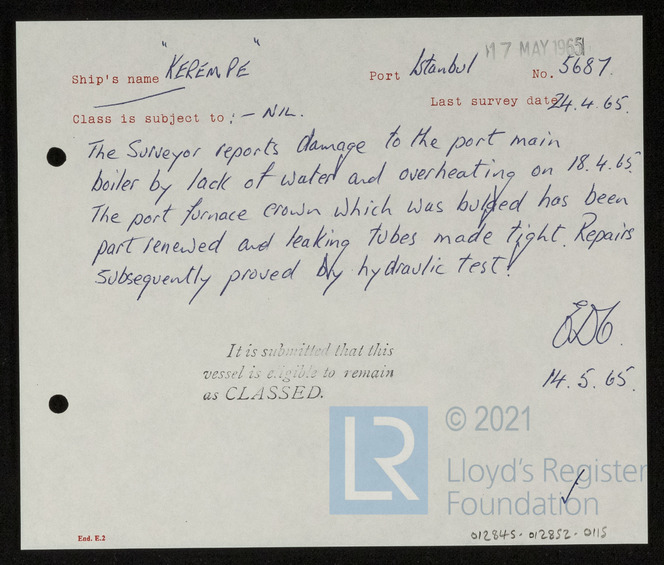 17 MAY 1965
Ship's name "KEREMPE" Port Istanbul No. 5687.
Last survey date 24.4.65.
Class is subject to :- NIL.
The Surveyor reports damage to the port main
boiler by lack of water and overheating on 18.4.65.
The port furnace crown which was bulged has been
part renewed and leaking tubes made tight. Repairs
subsequently proved by hydraulic test.
It is submitted that this
vessel is eligible to remain
as CLASSED.
14.5.65.
LR
© 2021
Lloyd's Register
Foundation
End. E.2
012845-012852-0115